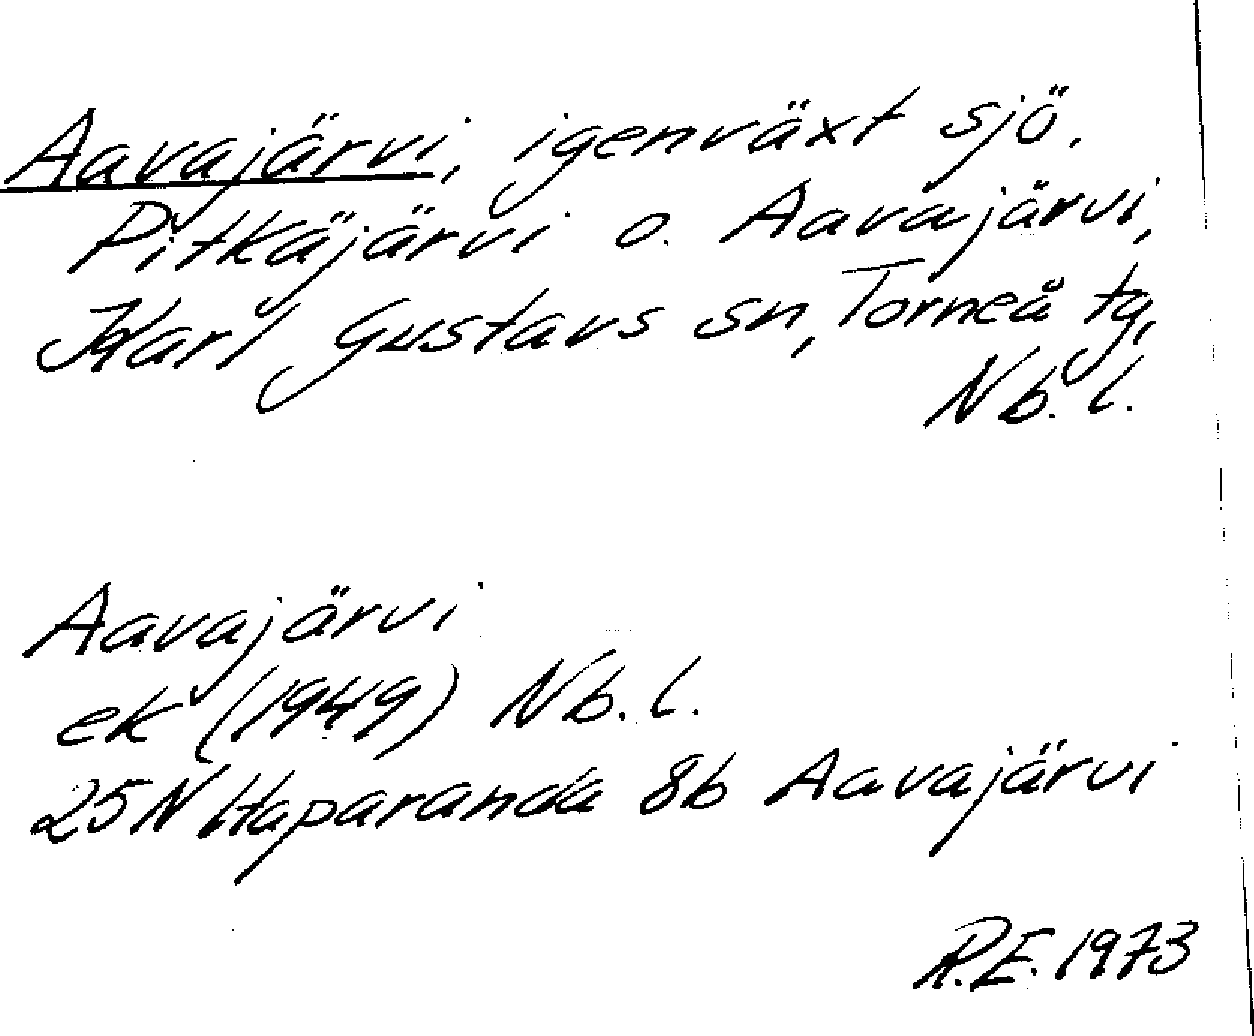 Aavajärvi, igenväxt sjö.
Pitkäjärvi o. Aavajärvi,
Karl Gustavs sn, Torneå tg,
Nb. l.
Aavajärvi
ek (1949) Nb. l.
25N Haparanda 8b Aavajärvi
R.E. 1973